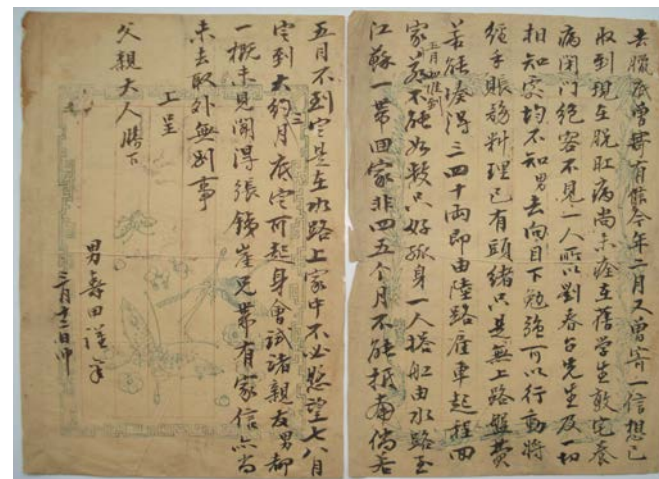 去臘底曾寄有信今年二月又曾寄一信想已
收到現在脫肛病尚未痊在舊學生敦宅養
病閉門絕客不見一人所以劉春台先生及一切
相知家均不知男去向目下勉強可以行動將
經手賬務料理已有頭緒只是無上路盤費
若能湊得三四十兩即由陸路雇車起程回
家五月初准到若不能如數只好孤身一人搭船由水路至
江蘇一帶回家非四五个月不能抵甯倘若
五月不到定是在水路上家中不必懸望七八月
定到大約三月底定可起身會試諸親友男都
一概未見聞得張鐵崖兄帶有家信亦尚
未去取外無別事
上呈
父親大人膝下
男壽田謹稟
三月十二日冲